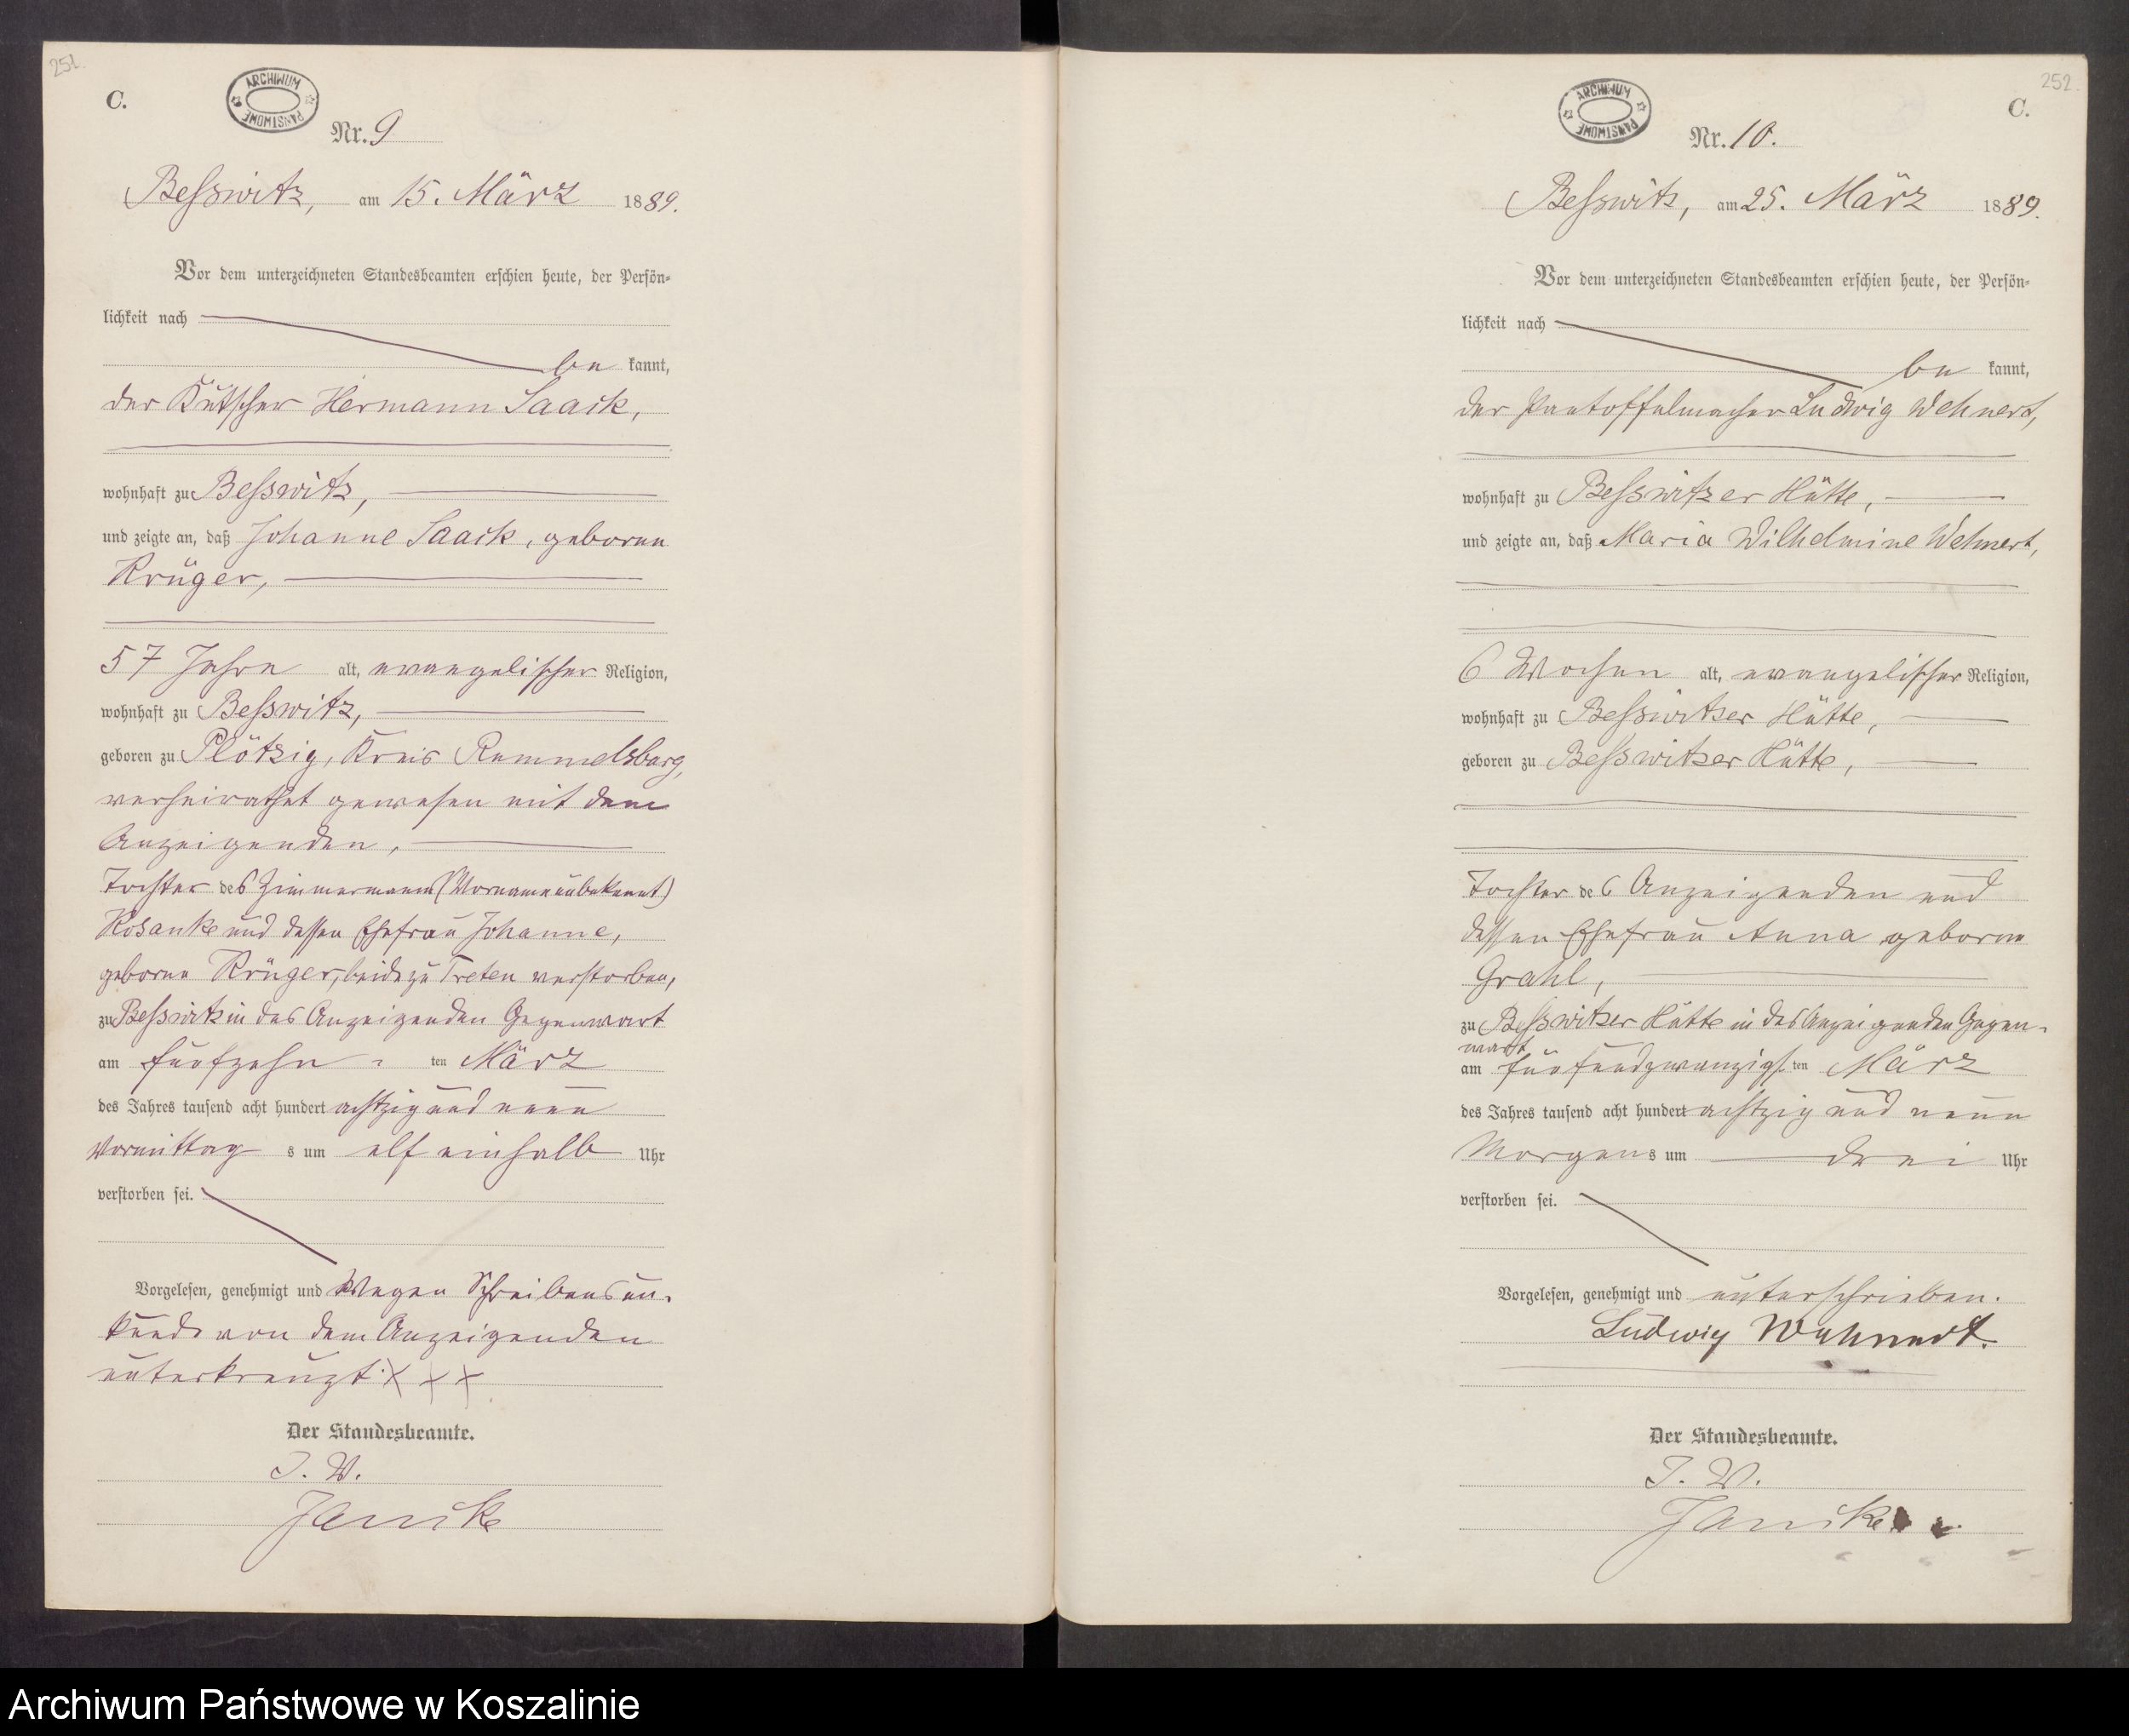 251.
C.
ARCHIWUM PAŃSTWOWE
Nr. 9
Besswitz, am 15. März 1889.
Vor dem unterzeichneten Standesbeamten erschien heute, der Persön-
lichkeit nach
be kannt,
der Kutscher Hermann Saack,
wohnhaft zu Besswitz,
und zeigte an, daß Johanne Saack, geborne
Krüger,
57 Jahre alt, evangelischer Religion,
wohnhaft zu Besswitz,
geboren zu Plötzig, Kreis Rummelsburg,
verheirathet gewesen mit dem
Anzeigenden,
Tochter des Zimmermann (Vorname unbekannt)
Kosanke und dessen Ehefrau Johanne,
geborne Krüger, beide zu Treten verstorben,
zu Besswitz in des Anzeigenden Gegenwart
am fünfzehn - ten März
des Jahres tausend acht hundert achtzig und neun
Vormittag s um elf einhalb Uhr
verstorben sei.
Vorgelesen, genehmigt und Wegen Schreibensun-
kunde von dem Anzeigenden
unterkreuzt: X X X
Der Standesbeamte.
J. V.
Janike
252.
C.
ARCHIWUM PAŃSTWOWE
Nr. 10.
Besswitz, am 25. März 1889.
Vor dem unterzeichneten Standesbeamten erschien heute, der Persön-
lichkeit nach
be kannt,
der Pantoffelmacher Ludwig Wehnert,
wohnhaft zu Besswitzer Hütte,
und zeigte an, daß Maria Wilhelmine Wehnert,
6 Wochen alt, evangelischer Religion,
wohnhaft zu Besswitzer Hütte,
geboren zu Besswitzer Hütte,
Tochter des Anzeigenden und
dessen Ehefrau Anna geborne
Grahl,
zu Besswitzer Hütte in des Anzeigenden Gegen-
wart
am fünfundzwanzigs. ten März
des Jahres tausend acht hundert achtzig und neun
Morgens um drei Uhr
verstorben sei.
Vorgelesen, genehmigt und unterschrieben.
Ludwig Wehnert.
Der Standesbeamte.
J. V.
Janike
Archiwum Państwowe w Koszalinie